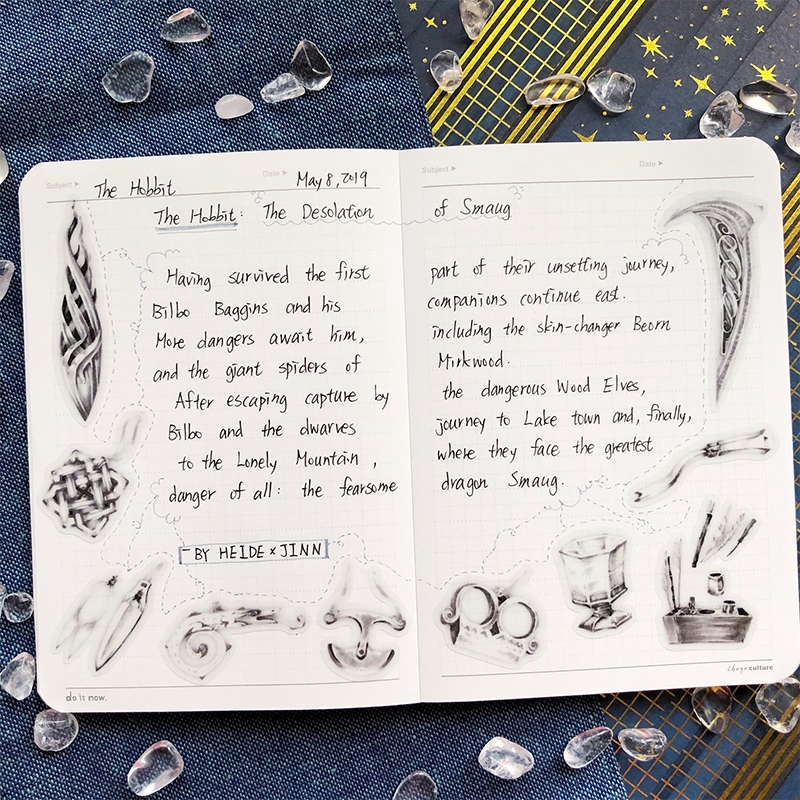 Subject ▶ The Hobbit Date ▶ May 8, 2019 Subject ▶ Date ▶
The Hobbit: The Desolation of Smaug
Having survived the first part of their unsetting journey,
Bilbo Baggins and his companions continue east.
More dangers await him, including the skin-changer Beorn
and the giant spiders of Mirkwood.
After escaping capture by the dangerous Wood Elves,
Bilbo and the dwarves journey to Lake town and, finally,
to the Lonely Mountain, where they face the greatest
danger of all: the fearsome dragon Smaug.
- BY HEIDE × JINN
do it now. chuyu culture